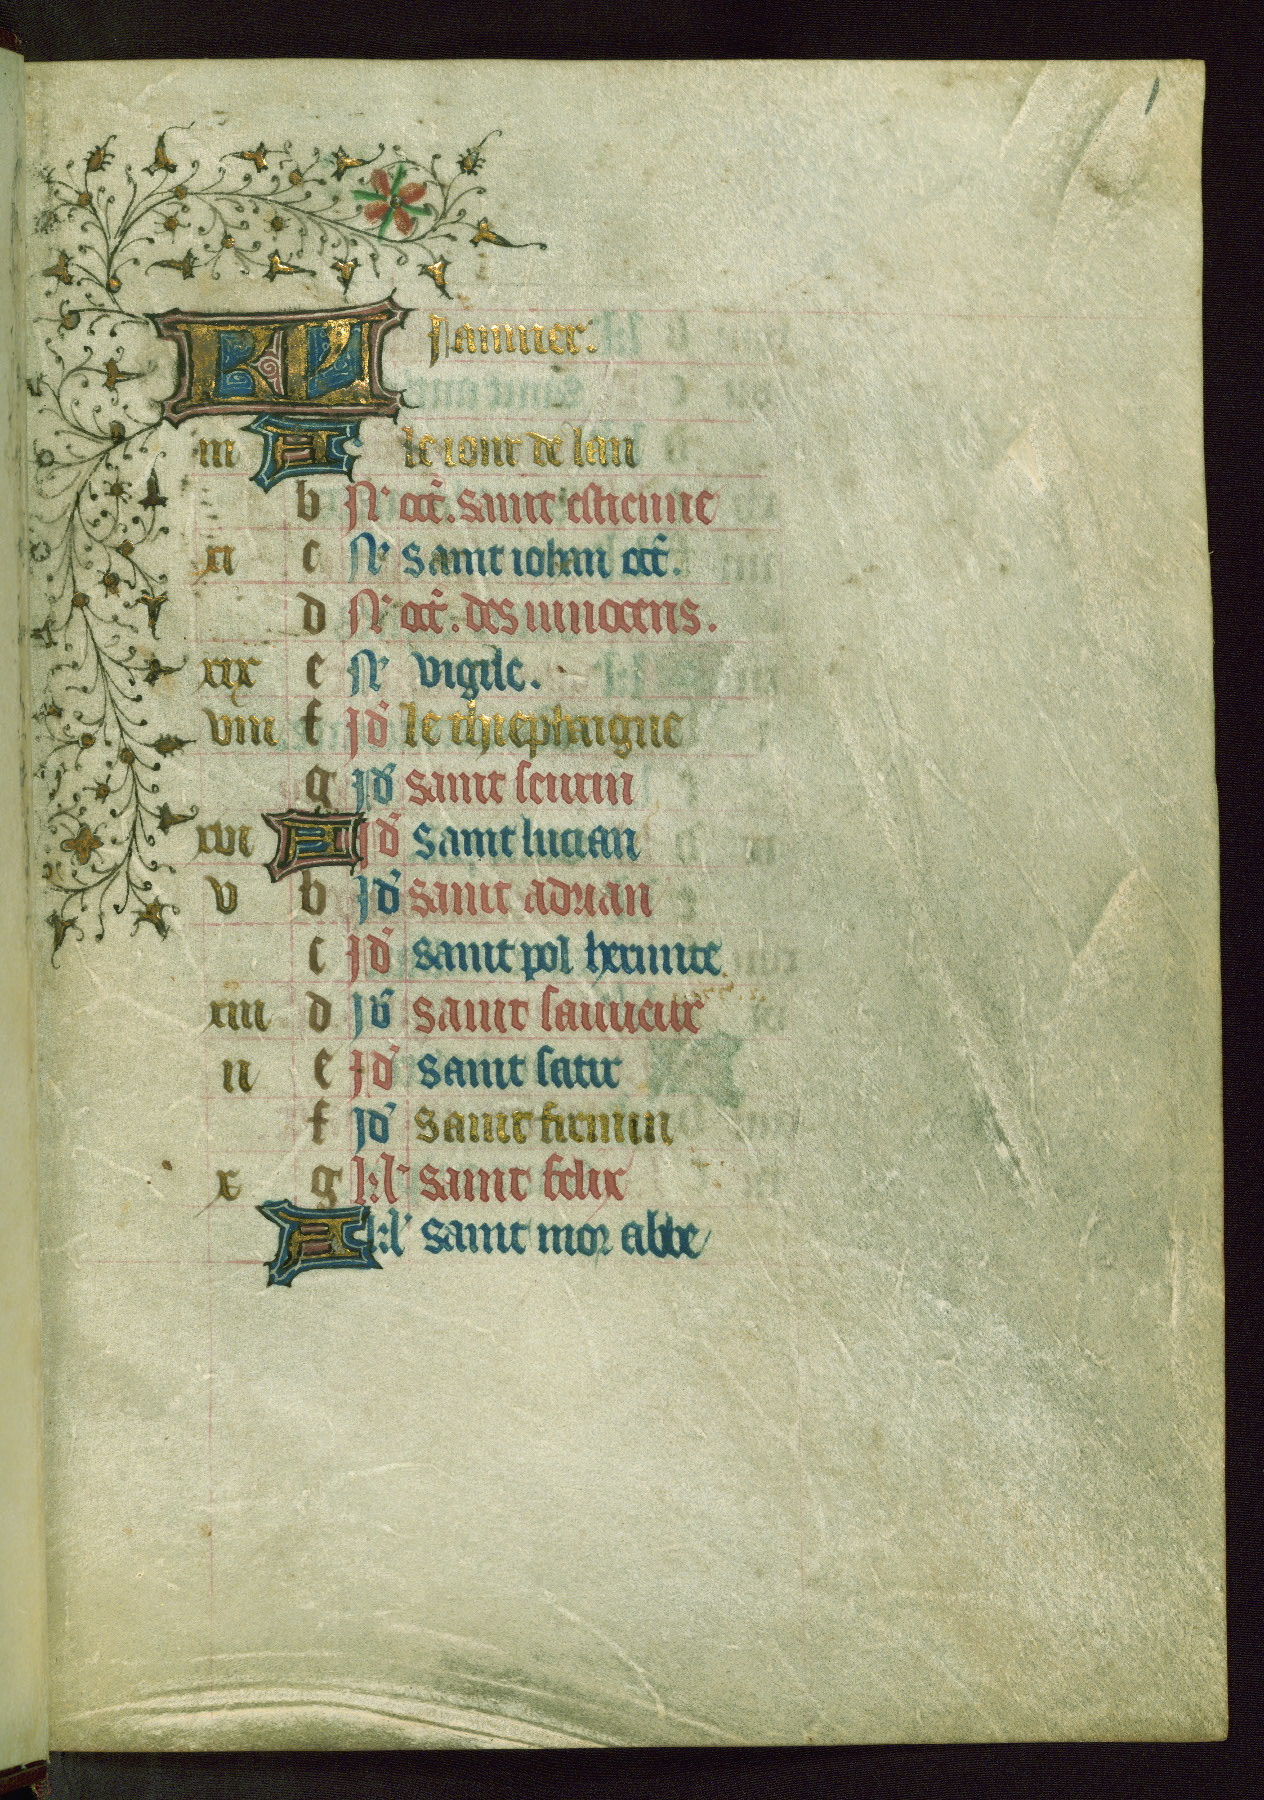 1
KL Januier.
iii A le iour de lan
b N' oct'. saint estienne
xi c N' saint iohan oct'.
d N' oct'. des innocens.
xix e N' vigile.
viii f Jd' le thiephaigne
g Jd' saint seurin
xvi A Jd' saint lucian
v b Jd' saint adrian
c Jd' saint pol hermite
xiii d Jd' saint sauueur
ii e Jd' saint satir
f Jd' saint firmin
x g kl' saint felix
A kl' saint mor abbe